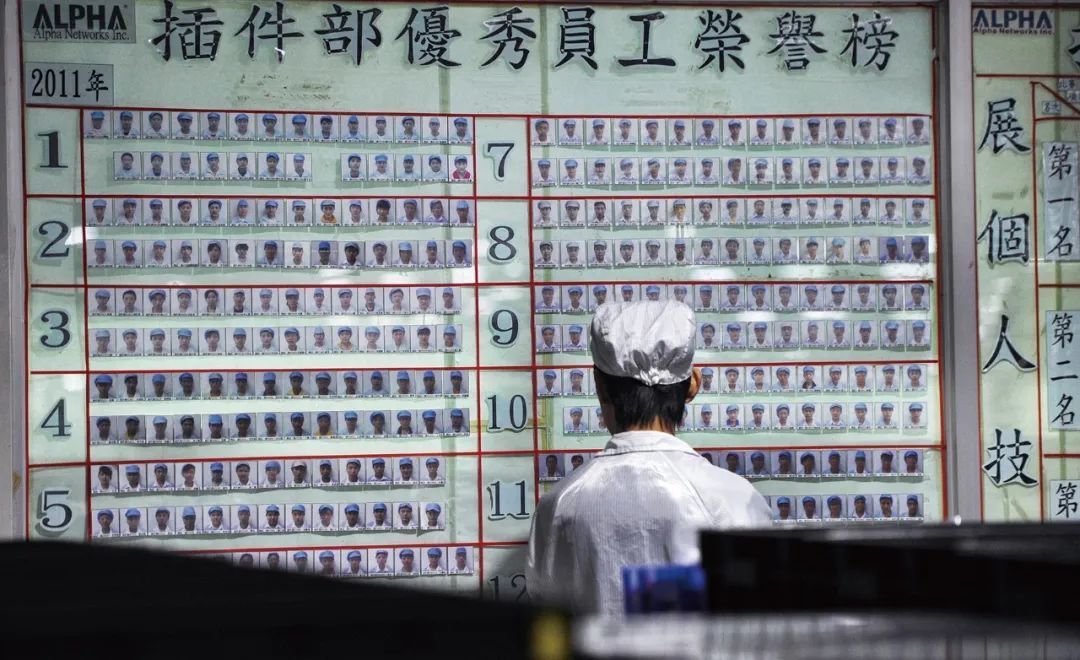 ALPHA
Alpha Networks Inc.
插件部優秀員工榮譽榜
2011年
1
2
3
4
5
7
8
9
10
11
12
ALPHA
Alpha Networks Inc.
展個人技
第一名
第二名
第